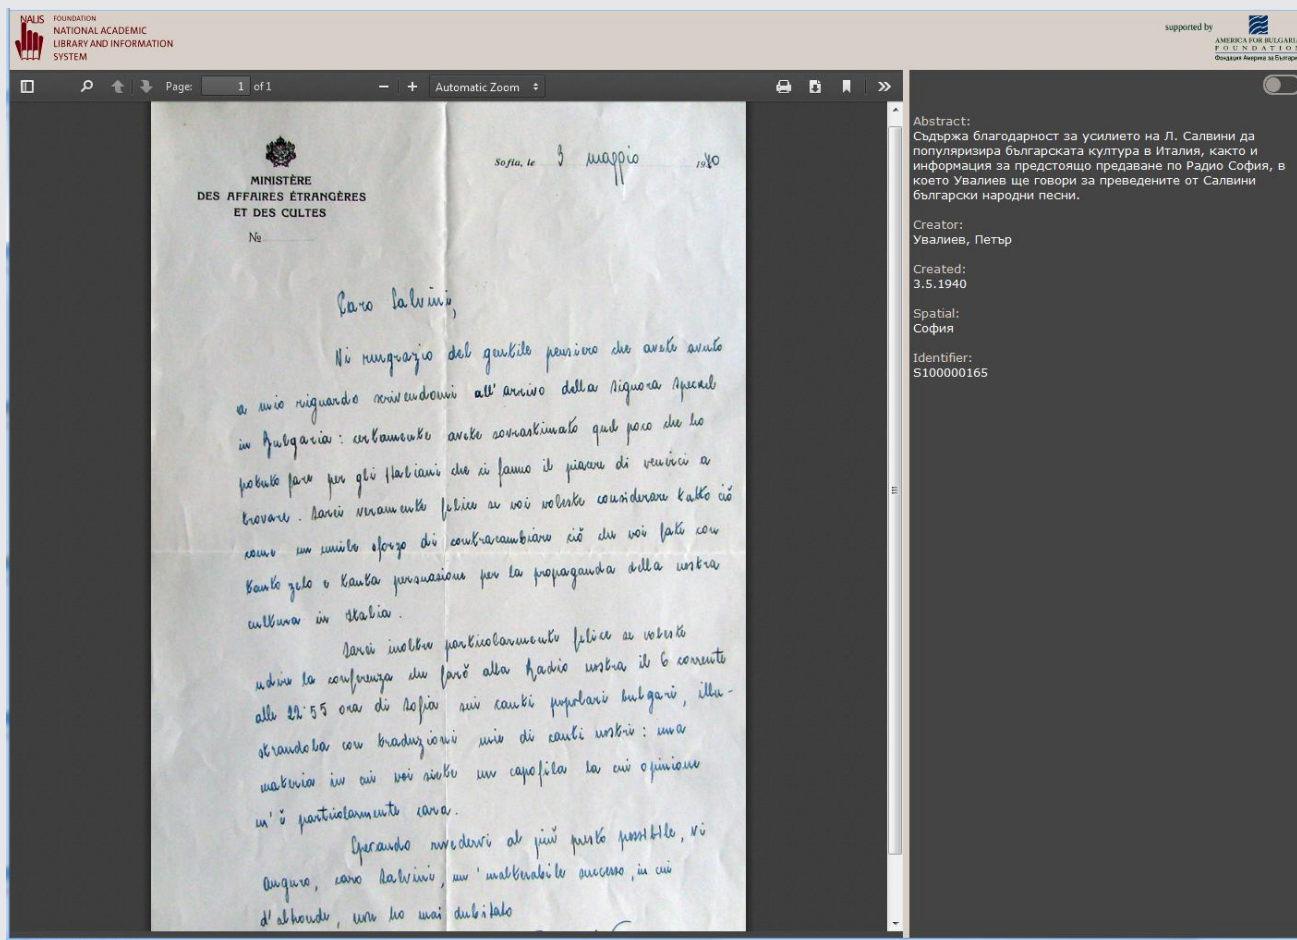 NALIS FOUNDATION
NATIONAL ACADEMIC
LIBRARY AND INFORMATION
SYSTEM
supported by
AMERICA FOR BULGARIA
FOUNDATION
Фондация Америка за България
Page: 1 of 1
Automatic Zoom
MINISTÈRE
DES AFFAIRES ÉTRANGÈRES
ET DES CULTES
№
Sofia, le 3 maggio 1940
Caro Salvini,
Vi ringrazio del gentile pensiero che avete avuto
a mio riguardo scrivendomi all'arrivo della signora
in Bulgaria: certamente avete sovrastimato quel poco che ho
potuto fare per gli Italiani che ci fanno il piacere di venirci a
trovare. Sarei veramente felice se voi voleste considerare tutto ciò
come un umile sforzo di contracambiare ciò che voi fate con
tanto zelo e tanta persuasione per la propaganda della nostra
cultura in Italia.
Sarei inoltre particolarmente felice se voleste
udire la conferenza che farò alla Radio nostra il 6 corrente
alle 22·55 ora di Sofia sui canti popolari bulgari, illu-
strandola con traduzioni mie di canti nostri: una
materia in cui voi siete un capofila la cui opinione
m'è particolarmente cara.
Sperando rivedervi al più presto possibile, vi
auguro, caro Salvini, un'inalterabile successo, in cui
d'altronde, non ho mai dubitato
Abstract:
Съдържа благодарност за усилието на Л. Салвини да
популяризира българската култура в Италия, както и
информация за предстоящо предаване по Радио София, в
което Увалиев ще говори за преведените от Салвини
български народни песни.
Creator:
Увалиев, Петър
Created:
3.5.1940
Spatial:
София
Identifier:
S100000165